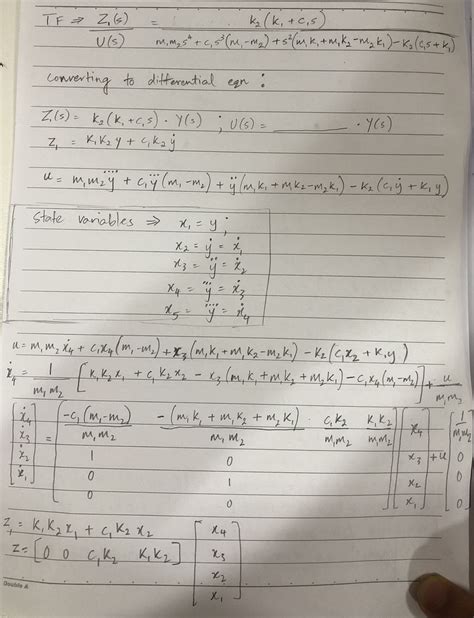 TF ⇒ Z₁(s) = k₂(k₁+c₁s)
U(s) m₁m₂s⁴+c₁s³(m₁-m₂)+s²(m₁k₁+m₁k₂-m₂k₁)-k₂(c₁s+k₁)
converting to differential eqn :
Z₁(s) = k₂(k₁+c₁s) · Y(s) ; U(s) = ______ · Y(s)
z₁ = k₁k₂y + c₁k₂ẏ
u = m₁m₂y⃜ + c₁y⃛(m₁-m₂) + ÿ(m₁k₁+m₁k₂-m₂k₁) - k₂(c₁ẏ + k₁y)
State variables ⇒ x₁ = y ;
x₂ = ẏ = ẋ₁
x₃ = ÿ = ẋ₂
x₄ = y⃛ = ẋ₃
x₅ = y⃜ = ẋ₄
u = m₁m₂ẋ₄ + c₁x₄(m₁-m₂) + x₃(m₁k₁+m₁k₂-m₂k₁) - k₂(c₁x₂+k₁y)
ẋ₄ = 1/m₁m₂ [k₁k₂x₁ + c₁k₂x₂ - x₃(m₁k₁+m₁k₂+m₂k₁) - c₁x₄(m₁-m₂)] + u/m₁m₂
ẋ₄ -c₁(m₁-m₂)/m₁m₂ -(m₁k₁+m₁k₂+m₂k₁)/m₁m₂ c₁k₂/m₁m₂ k₁k₂/m₁m₂ x₄ 1/m₁m₂
ẋ₃ = 1 0 x₃ + u 0
ẋ₂ 0 1 x₂ 0
ẋ₁ 0 0 x₁ 0
z₁ = k₁k₂x₁ + c₁k₂x₂
z = [0 0 c₁k₂ k₁k₂] x₄
x₃
x₂
x₁
Double A